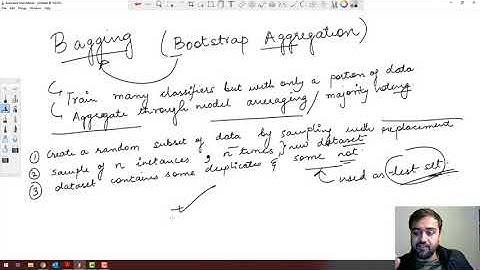 Bagging (Bootstrap Aggregation)
Train many classifiers but with only a portion of data
Aggregate through model averaging / majority voting
① Create a random subset of data by sampling with replacement
② sample of n instances, n times } new dataset.
③ dataset contains some duplicates & some not.
used as test set.